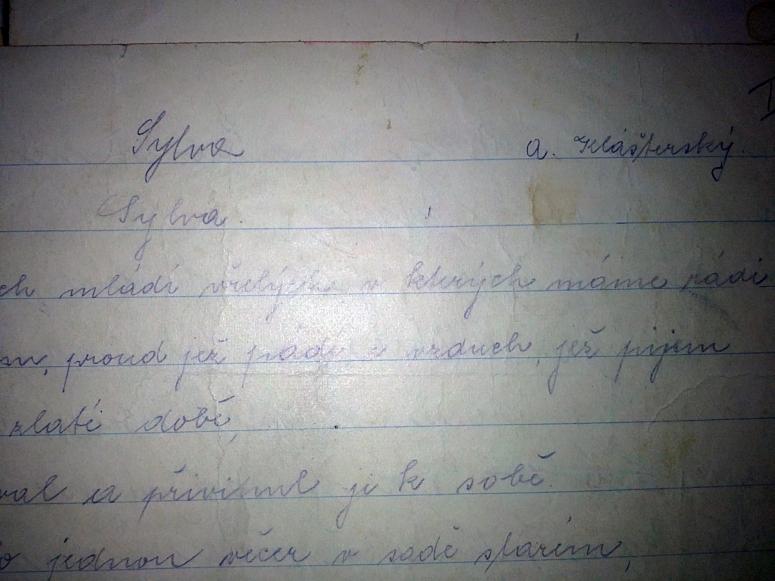 Sylva a. Klášterský.
Sylva.
ch mládí vřelých, v kterých máme rádi
m, proud jež pádí a vzduch, jež pijem
zlaté době,
val a přivinul ji k sobě.
jednou večer v sadě starém,